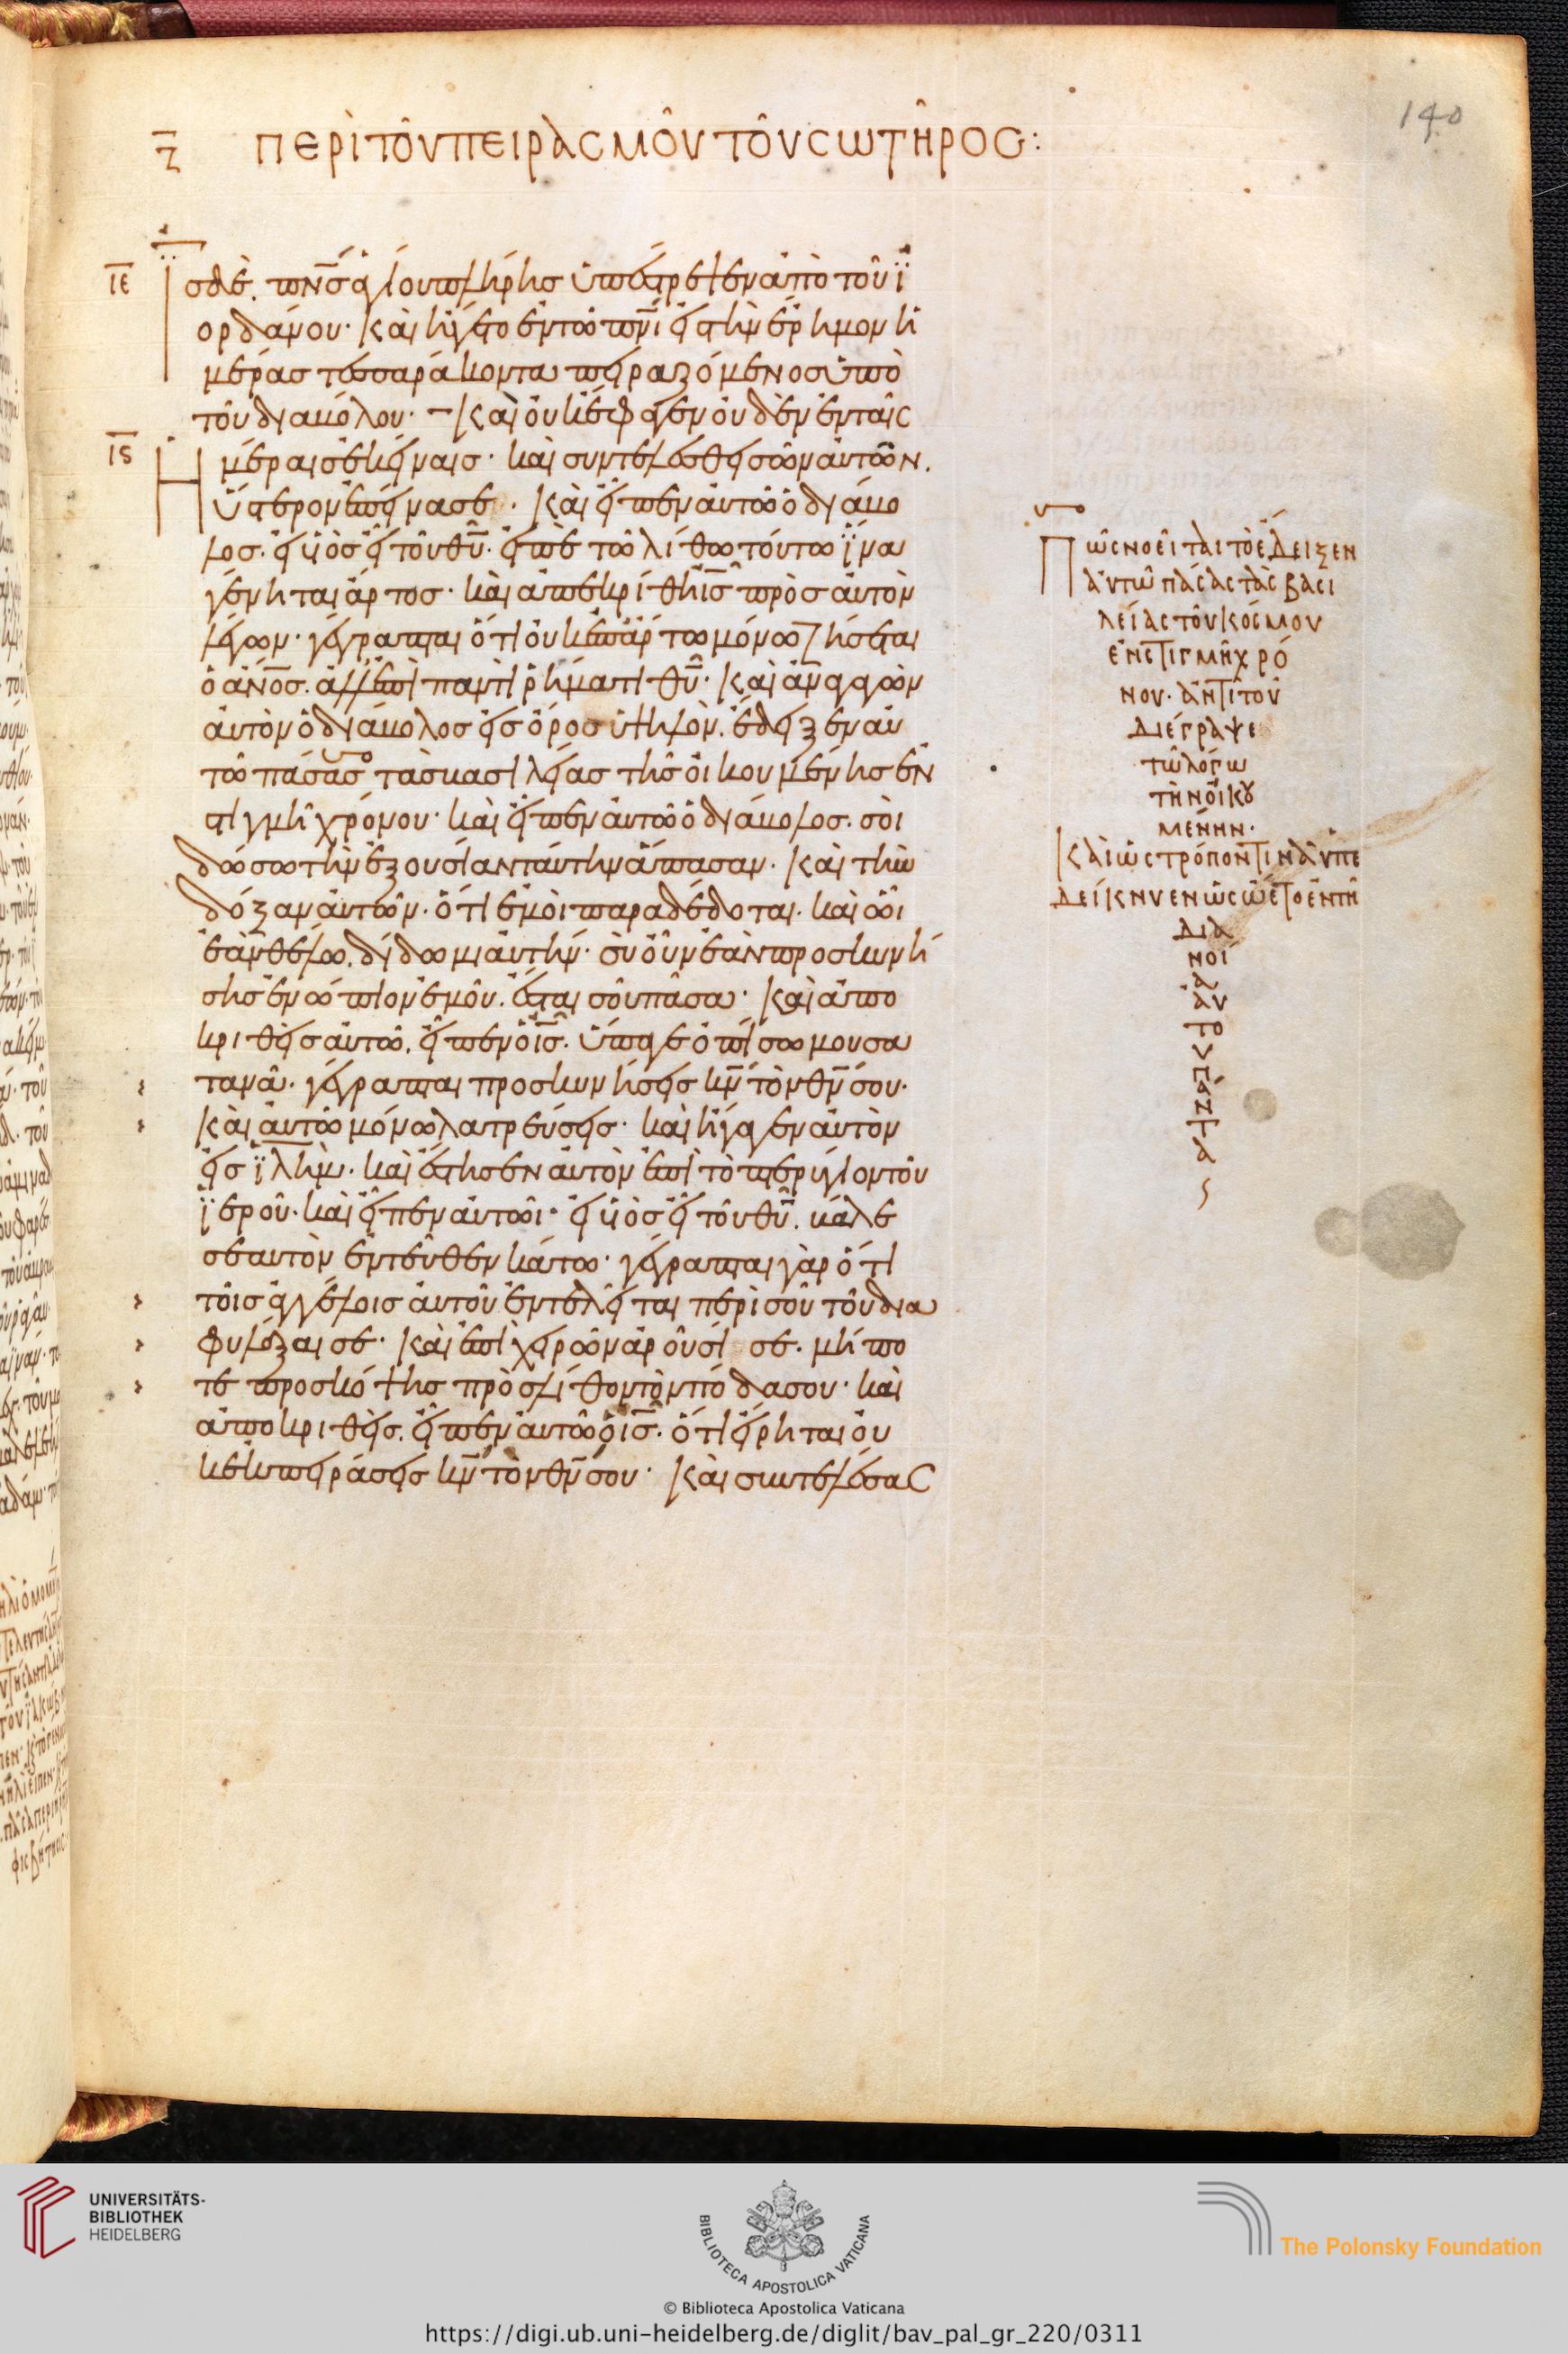 140
ζ̅ ΠΕΡὶ ΤΟῦ ΠΕΙΡΑΣΜΟῦ ΤΟῦ ΣΩΤῆΡΟΣ:
ιε̅ ϊ̅ς δὲ. πν̅ς ἁγίου πλήρης ὑπέστρεψεν ἀπὸ τοῦ ϊ
ορδάνου· καὶ ἤγετο ἐν τῶ πν̅ι εἰς τὴν ἔρημον ἡ
μέρας τεσσαράκοντα πειραζόμενος ὑπὸ
τοῦ διαβόλου· καὶ οὐκ ἔφαγεν οὐδὲν ἐν ταῖς
ιϛ̅ Ημέραις ἐκείναις· καὶ συντελεσθεισῶν αὐτῶν.
ὕστερον ἐπείνασε· καὶ εἶπεν αὐτῶ ὁ διάβο
λος. εἰ υἱὸς εἶ τοῦ θυ̅. εἰπὲ τῶ λίθω τούτω ϊνα
γένηται ἄρτος· καὶ ἀπεκρίθη ι̅ς πρὸς αὐτὸν
λέγων· γέγραπται ὅτι οὐκ ἐπ' ἄρτω μόνω ζήσεται
ὁ ἄνο̅ς. ἀλλ' ἐπὶ παντὶ ῥήματι θυ̅· καὶ ἀναγαγὼν
αὐτὸν ὁ διάβολος εἰς ὄρος ὑψηλὸν. ἔδειξεν αὐ
τῶ πάσας τὰς βασιλείας τῆς οἰκουμένης ἐν
στιγμῆ χρόνου· καὶ εἶπεν αὐτῶ ὁ διάβολος. σοὶ
δώσω τὴν ἐξουσίαν ταύτην ἅπασαν. καὶ τὴν
δόξαν αὐτῶν· ὅτι ἐμοὶ παραδέδοται. καὶ ὧι
ἐὰν θέλω. δίδωμι αὐτήν· σὺ οὖν ἐὰν προσκυνή
σης ἐνώπιον ἐμοῦ. ἔσται σοῦ πᾶσα· καὶ ἀπο
κριθεὶς αὐτῶ. εἶπεν ὁ ι̅ς. ὕπαγε ὀπίσω μου σα
τανᾶ. γέγραπται προσκυνήσεις κν̅ τὸν θν̅ σου.
καὶ αὐτῶ μόνω λατρεύσεις· καὶ ἤγαγεν αὐτὸν
εἰς ϊλη̅μ. καὶ ἔστησεν αὐτὸν ἐπὶ τὸ πτερύγιον τοῦ
ϊεροῦ· καὶ εἶπεν αὐτῶι· εἰ υἱὸς εἶ τοῦ θυ̅. βάλε
σεαυτὸν ἐντεῦθεν κάτω· γέγραπται γὰρ ὅτι
τοῖς ἀγγέλοις αὐτοῦ ἐντελεῖται περὶ σοῦ τοῦ δια
φυλάξαι σε· καὶ ἐπὶ χειρῶν ἀροῦσί σε. μή πο
τε προσκόψης πρὸς λίθον τὸν πόδα σου· καὶ
ἀποκριθεὶς. εἶπεν αὐτῶ ὁ ι̅ς· ὅτι εἴρηται οὐ
κ ἐκπειράσεις κν̅ τὸν θν̅ σου· καὶ συντελέσας
Πῶς νοεῖται τὸ ἔδειξεν
αὐτῶ πάσας τὰς βασι
λείας τοῦ κόσμου
ἐν στιγμῆ χρό
νου· ἀντὶ τοῦ
διέγραψε
τῶ λόγω
τὴν οἰκου
μένην·
καὶ ὡς τρόπον τινὰ ὑπε
δείκνυεν ὡς ὤετο ἐν τῆ
δια
νοί
ᾳ
αὐ
το
ῦ
π
ά
ν
τ
α
UNIVERSITÄTS-
BIBLIOTHEK
HEIDELBERG
BIBLIOTECA APOSTOLICA VATICANA
The Polonsky Foundation
© Biblioteca Apostolica Vaticana
https://digi.ub.uni-heidelberg.de/diglit/bav_pal_gr_220/0311